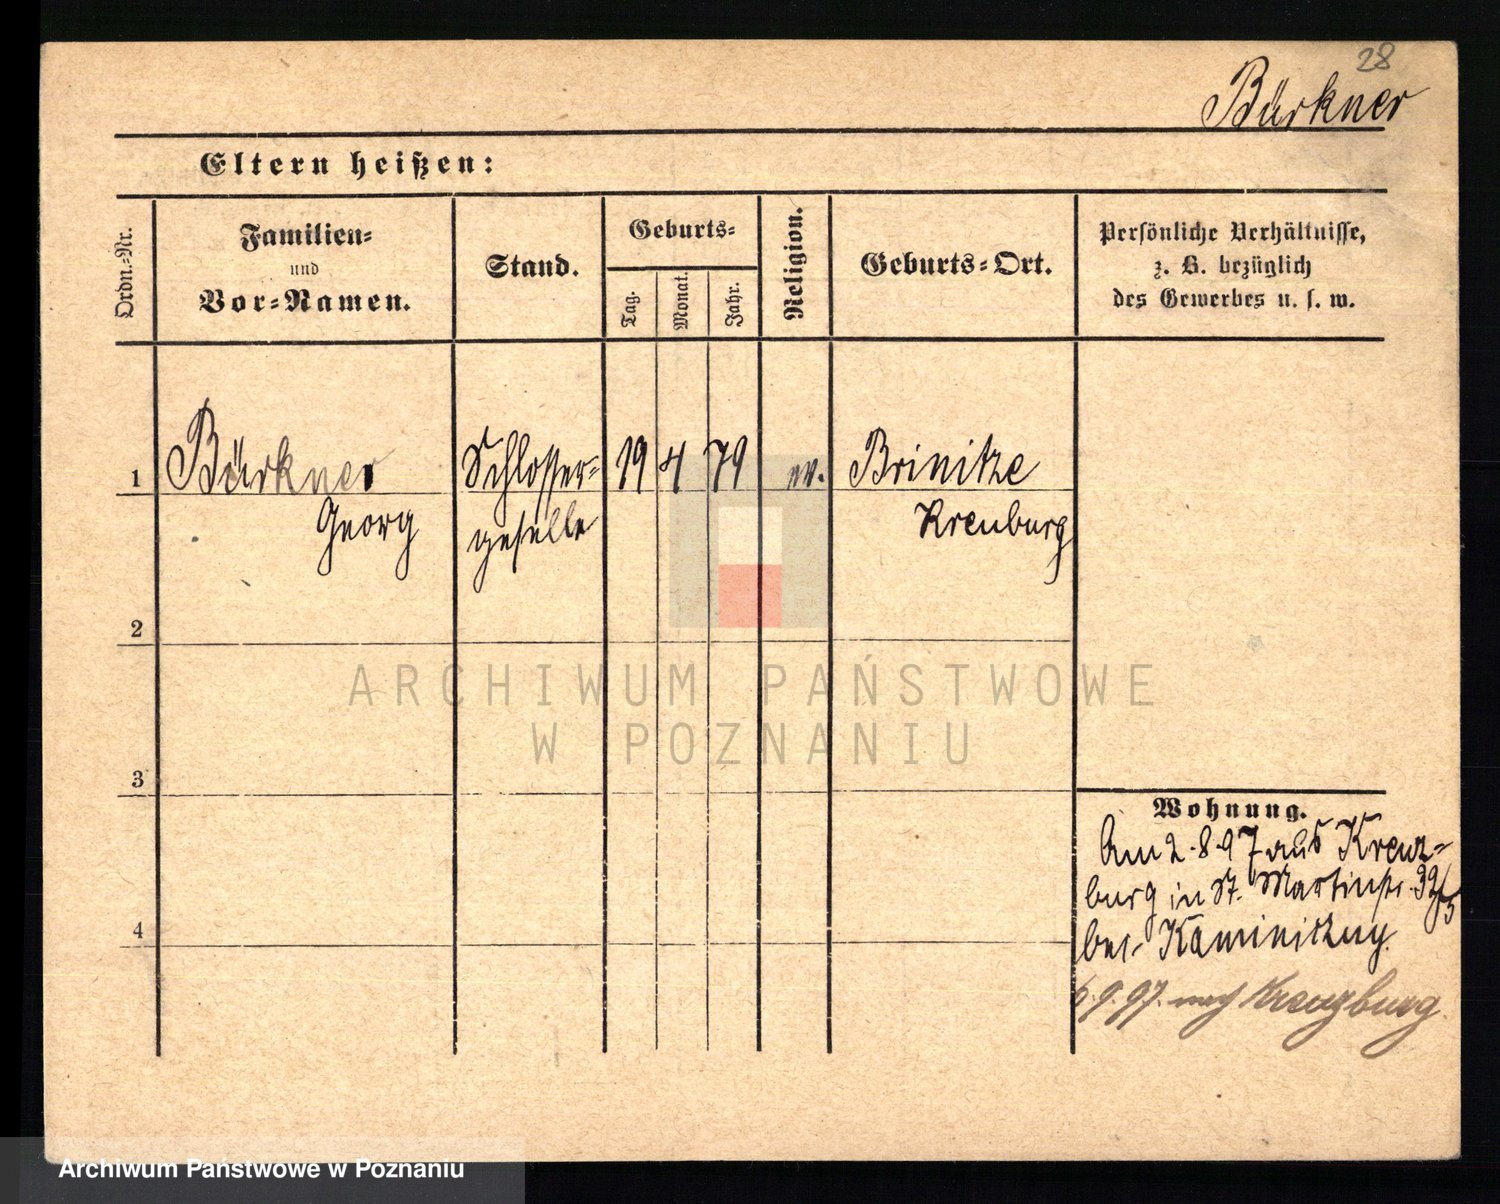 28
Bürkner
Eltern heißen:
Ordn.-Nr.
Familien-
und
Vor-Namen.
Stand.
Geburts-
Tag.
Monat.
Jahr.
Religion.
Geburts-Ort.
Persönliche Verhältnisse,
z. B. bezüglich
des Gewerbes u. s. w.
1
Bürkner
Georg
Schlosser-
geselle
19
4
79
ev.
Brinitze
Kreuburg
2
3
4
Wohnung.
Am 2.8.97 aus Kreuz-
burg in St. Martinstr. 32/
bei
6.9.97. nach Kreuzburg.
ARCHIWUM PAŃSTWOWE
W POZNANIU
Archiwum Państwowe w Poznaniu